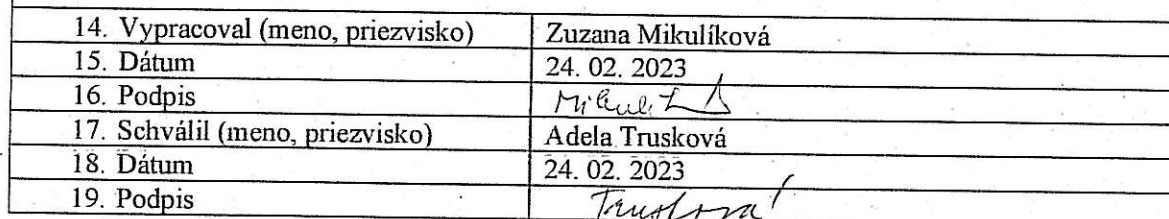 14. Vypracoval (meno, priezvisko) Zuzana Mikulíková
15. Dátum 24. 02. 2023
16. Podpis
17. Schválil (meno, priezvisko) Adela Trusková
18. Dátum 24. 02. 2023
19. Podpis Trusková